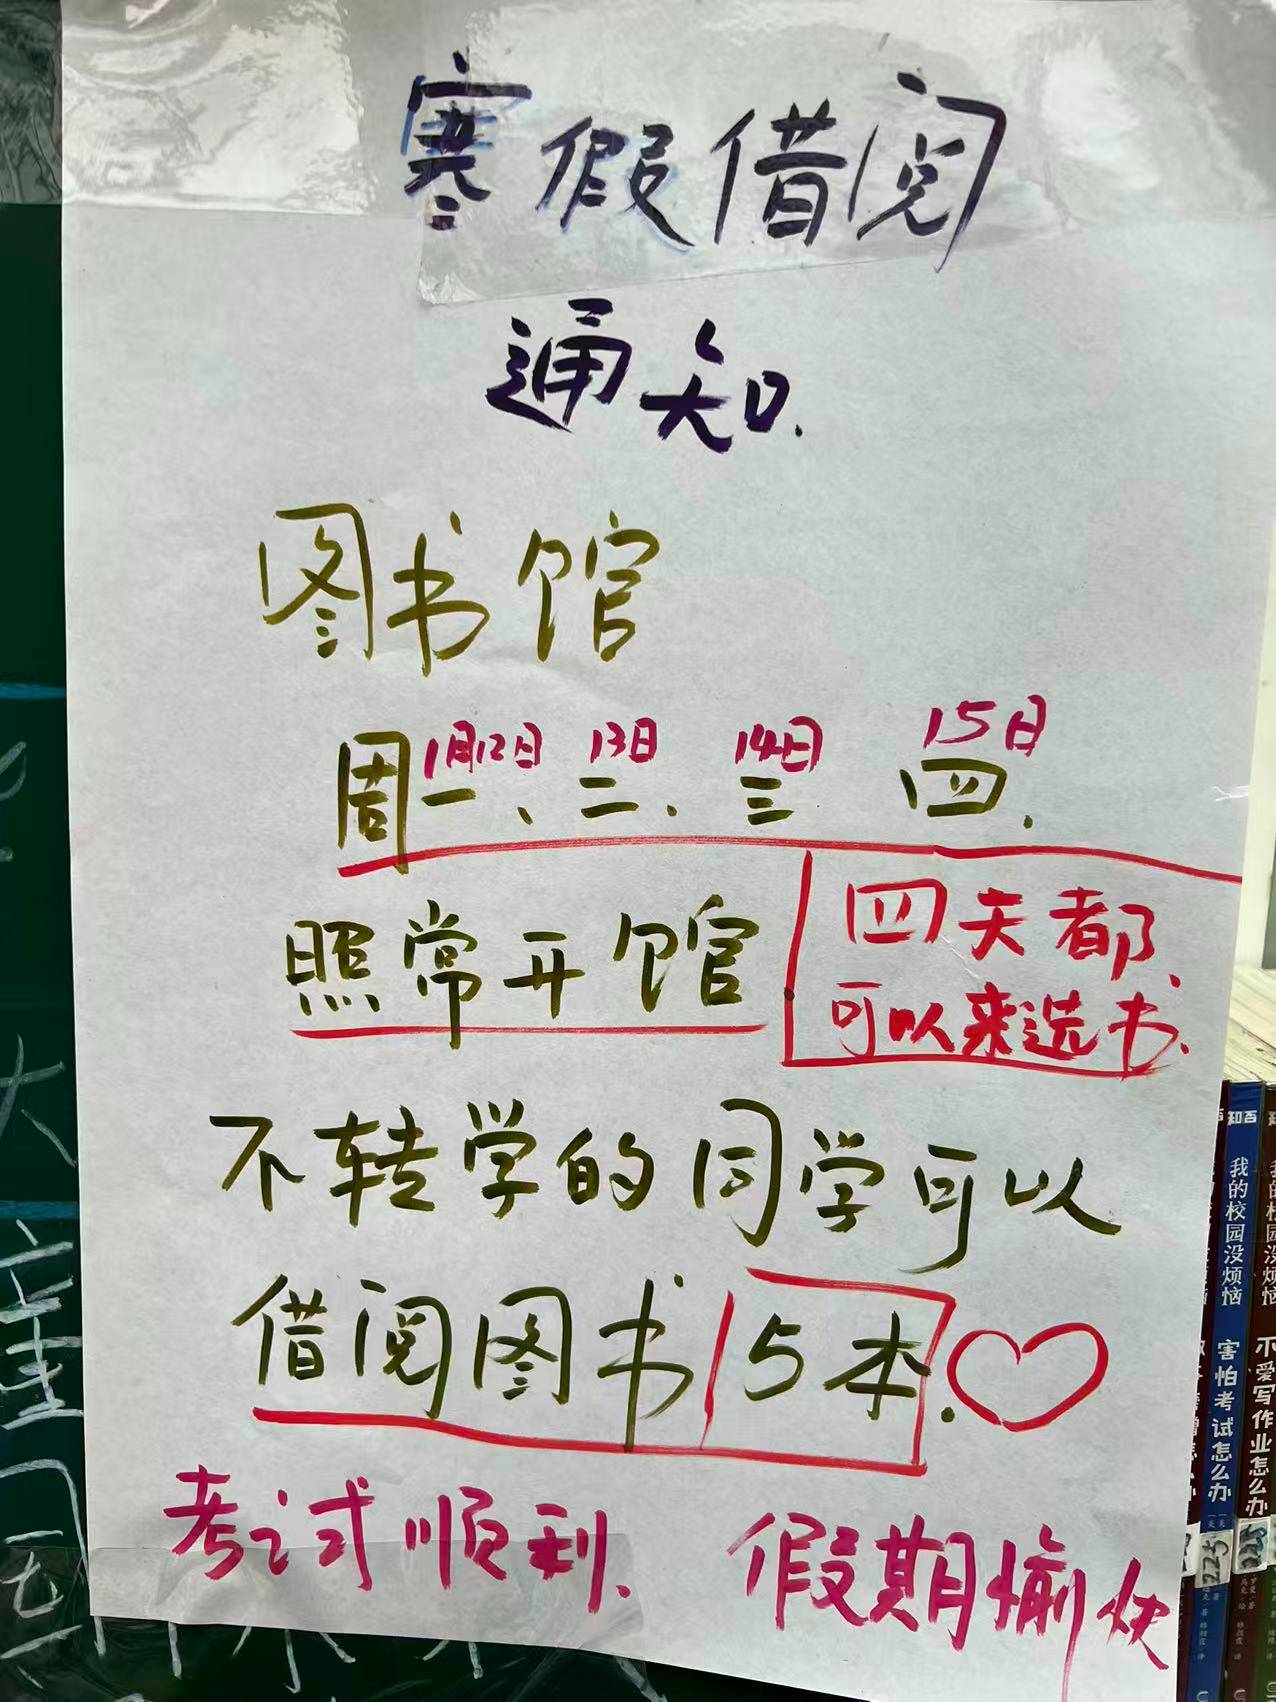 寒假借阅
通知.
图书馆
1月12日 13日 14日 15日
周一、二、三 四.
照常开馆
四天都
可以来选书.
不转学的同学可以
借阅图书5本.
考试顺利. 假期愉快
知百
我的校园没烦恼
害怕考试怎么办
225
我的校园没烦恼
不爱写作业怎么办